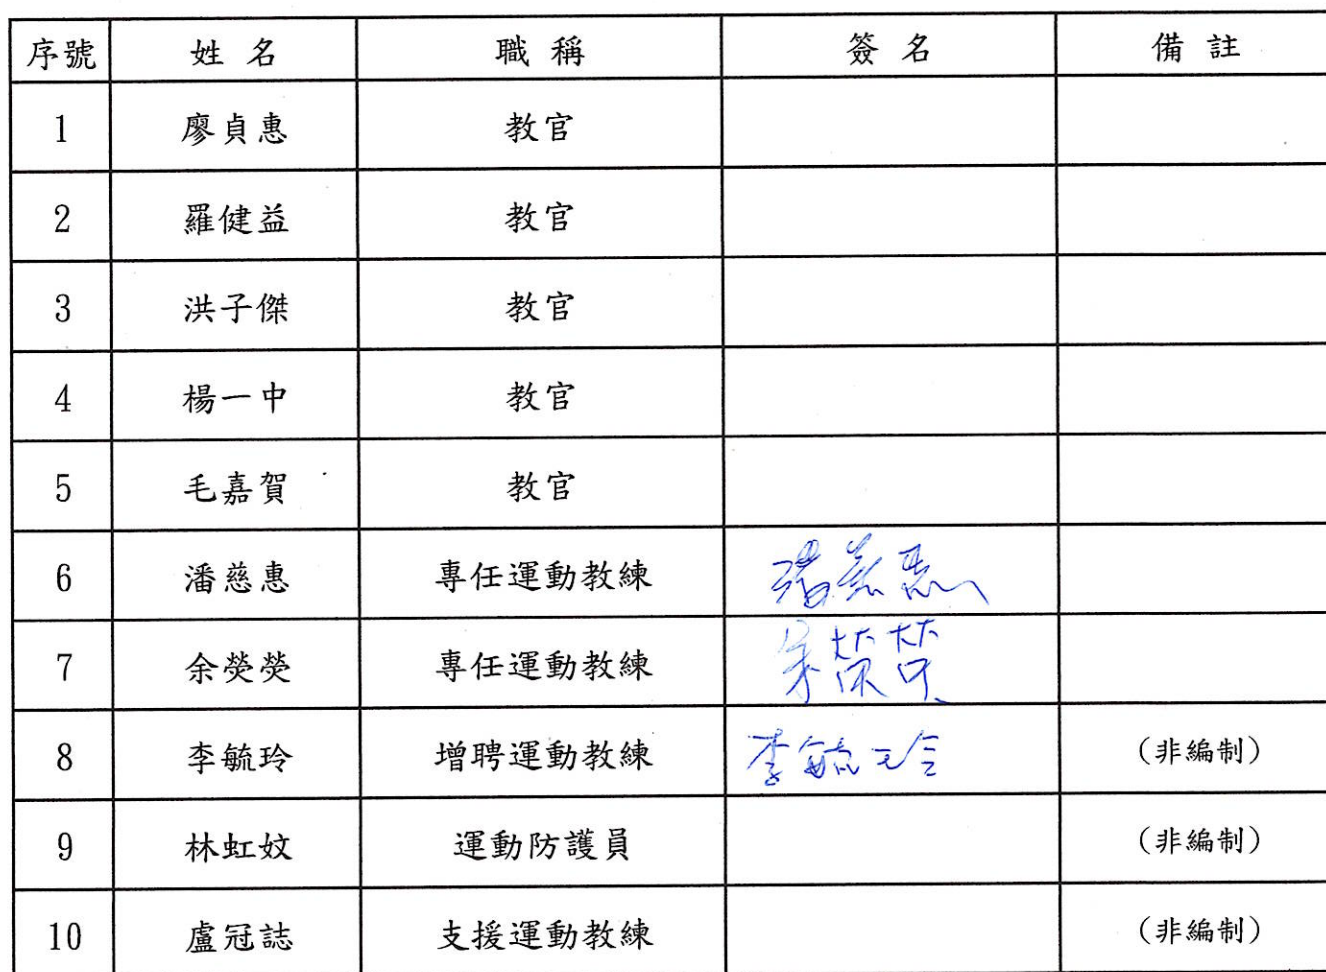 序號 姓名 職稱 簽名 備註
1 廖貞惠 教官
2 羅健益 教官
3 洪子傑 教官
4 楊一中 教官
5 毛嘉賀 教官
6 潘慈惠 專任運動教練 潘慈惠
7 余熒熒 專任運動教練
8 李毓玲 增聘運動教練 李毓玲 (非編制)
9 林虹妏 運動防護員 (非編制)
10 盧冠誌 支援運動教練 (非編制)